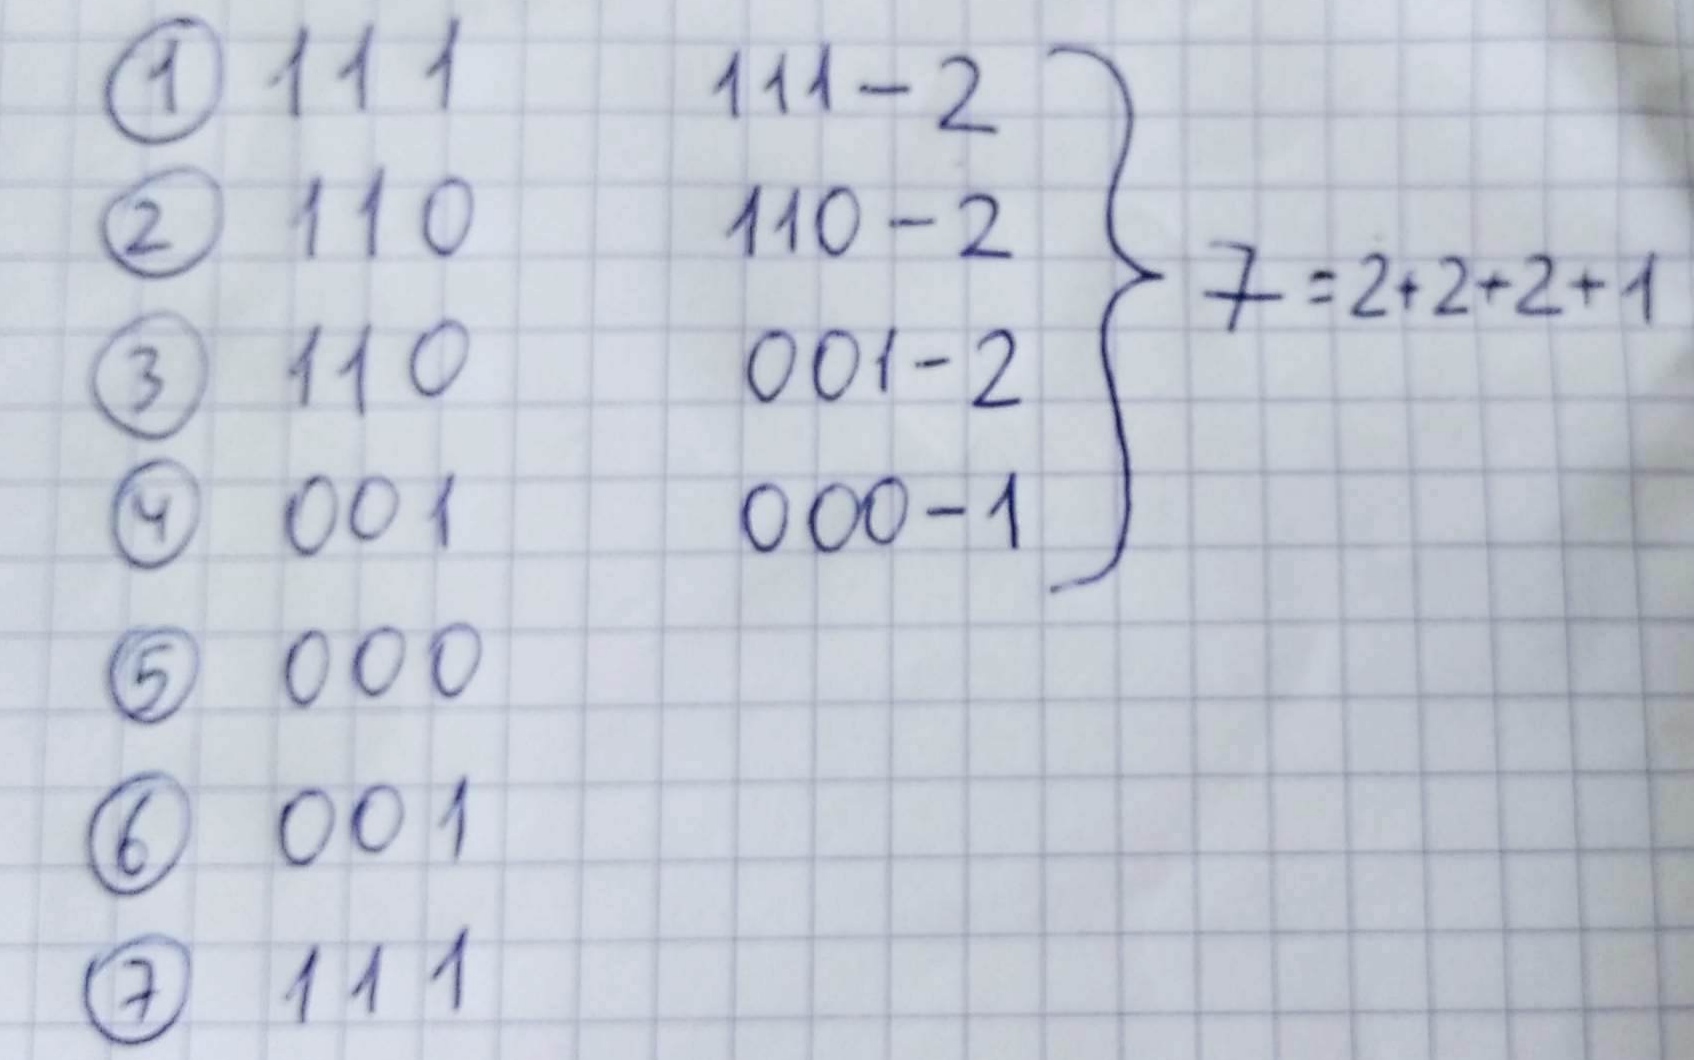 ① 111 111-2
② 110 110-2
③ 110 001-2
④ 001 000-1
7=2+2+2+1
⑤ 000
⑥ 001
⑦ 111